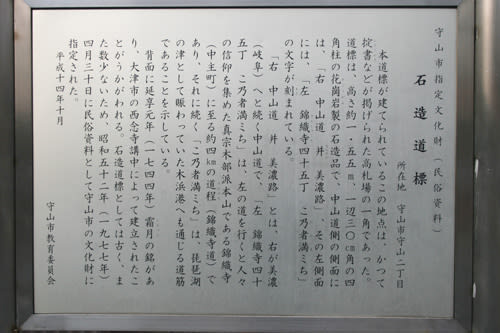 守山市指定文化財（民俗資料）
石造道標
所在地　守山市守山二丁目
本道標が建てられているこの地点は、かつて
掟書などが掲げられた高札場の一角であった。
道標は、高さ約一・五五m、一辺三〇cm角の四
角柱の花崗岩製の石造品で、中山道側の側面に
は、「右　中山道　并　美濃路」、その左側面
には、「左　錦織寺四十五丁　こ乃者満ミち」
の文字が刻まれている。
「右　中山道　并　美濃路」とは、右が美濃
（岐阜）へと続く中山道で、「左　錦織寺四十
五丁　こ乃者満ミち」は、左の道を行くと人々
の信仰を集めた真宗木部派本山である錦織寺
（中主町）に至る約四kmの道程（錦織寺道）で
あり、それに続く「こ乃者満ミち」は、琵琶湖
の津として賑わっていた木浜港へも通じる道筋
であることを示している。
背面に延享元年（一七四四）霜月の銘があ
り、大津市の西念寺講中によって建立されたこ
とがうかがわれる。石造道標としては古く、ま
た数少ないため、昭和五十二年（一九七七年）
四月三十日に民俗資料として守山市の文化財に
指定された。
平成十四年十月
守山市教育委員会